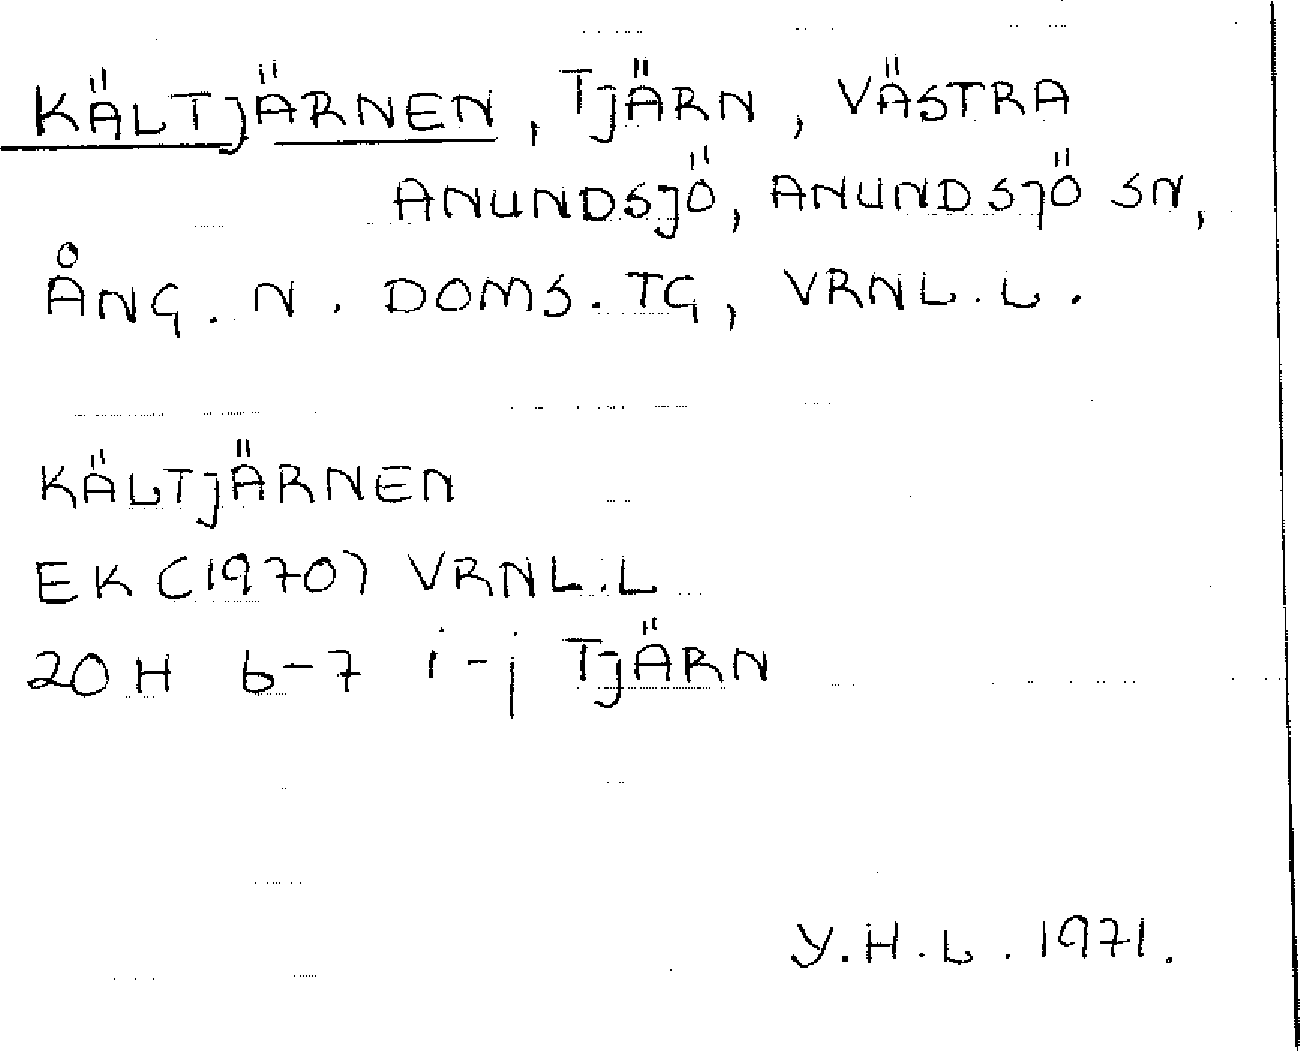 KÄLTJÄRNEN, TJÄRN, VÄSTRA
ANUNDSJÖ, ANUNDSJÖ SN,
ÅNG. N. DOMS. TG, VRNL. L.
KÄLTJÄRNEN
EK (1970) VRNL.L
20 H 6-7 i-j TJÄRN
Y.H.L. 1971.